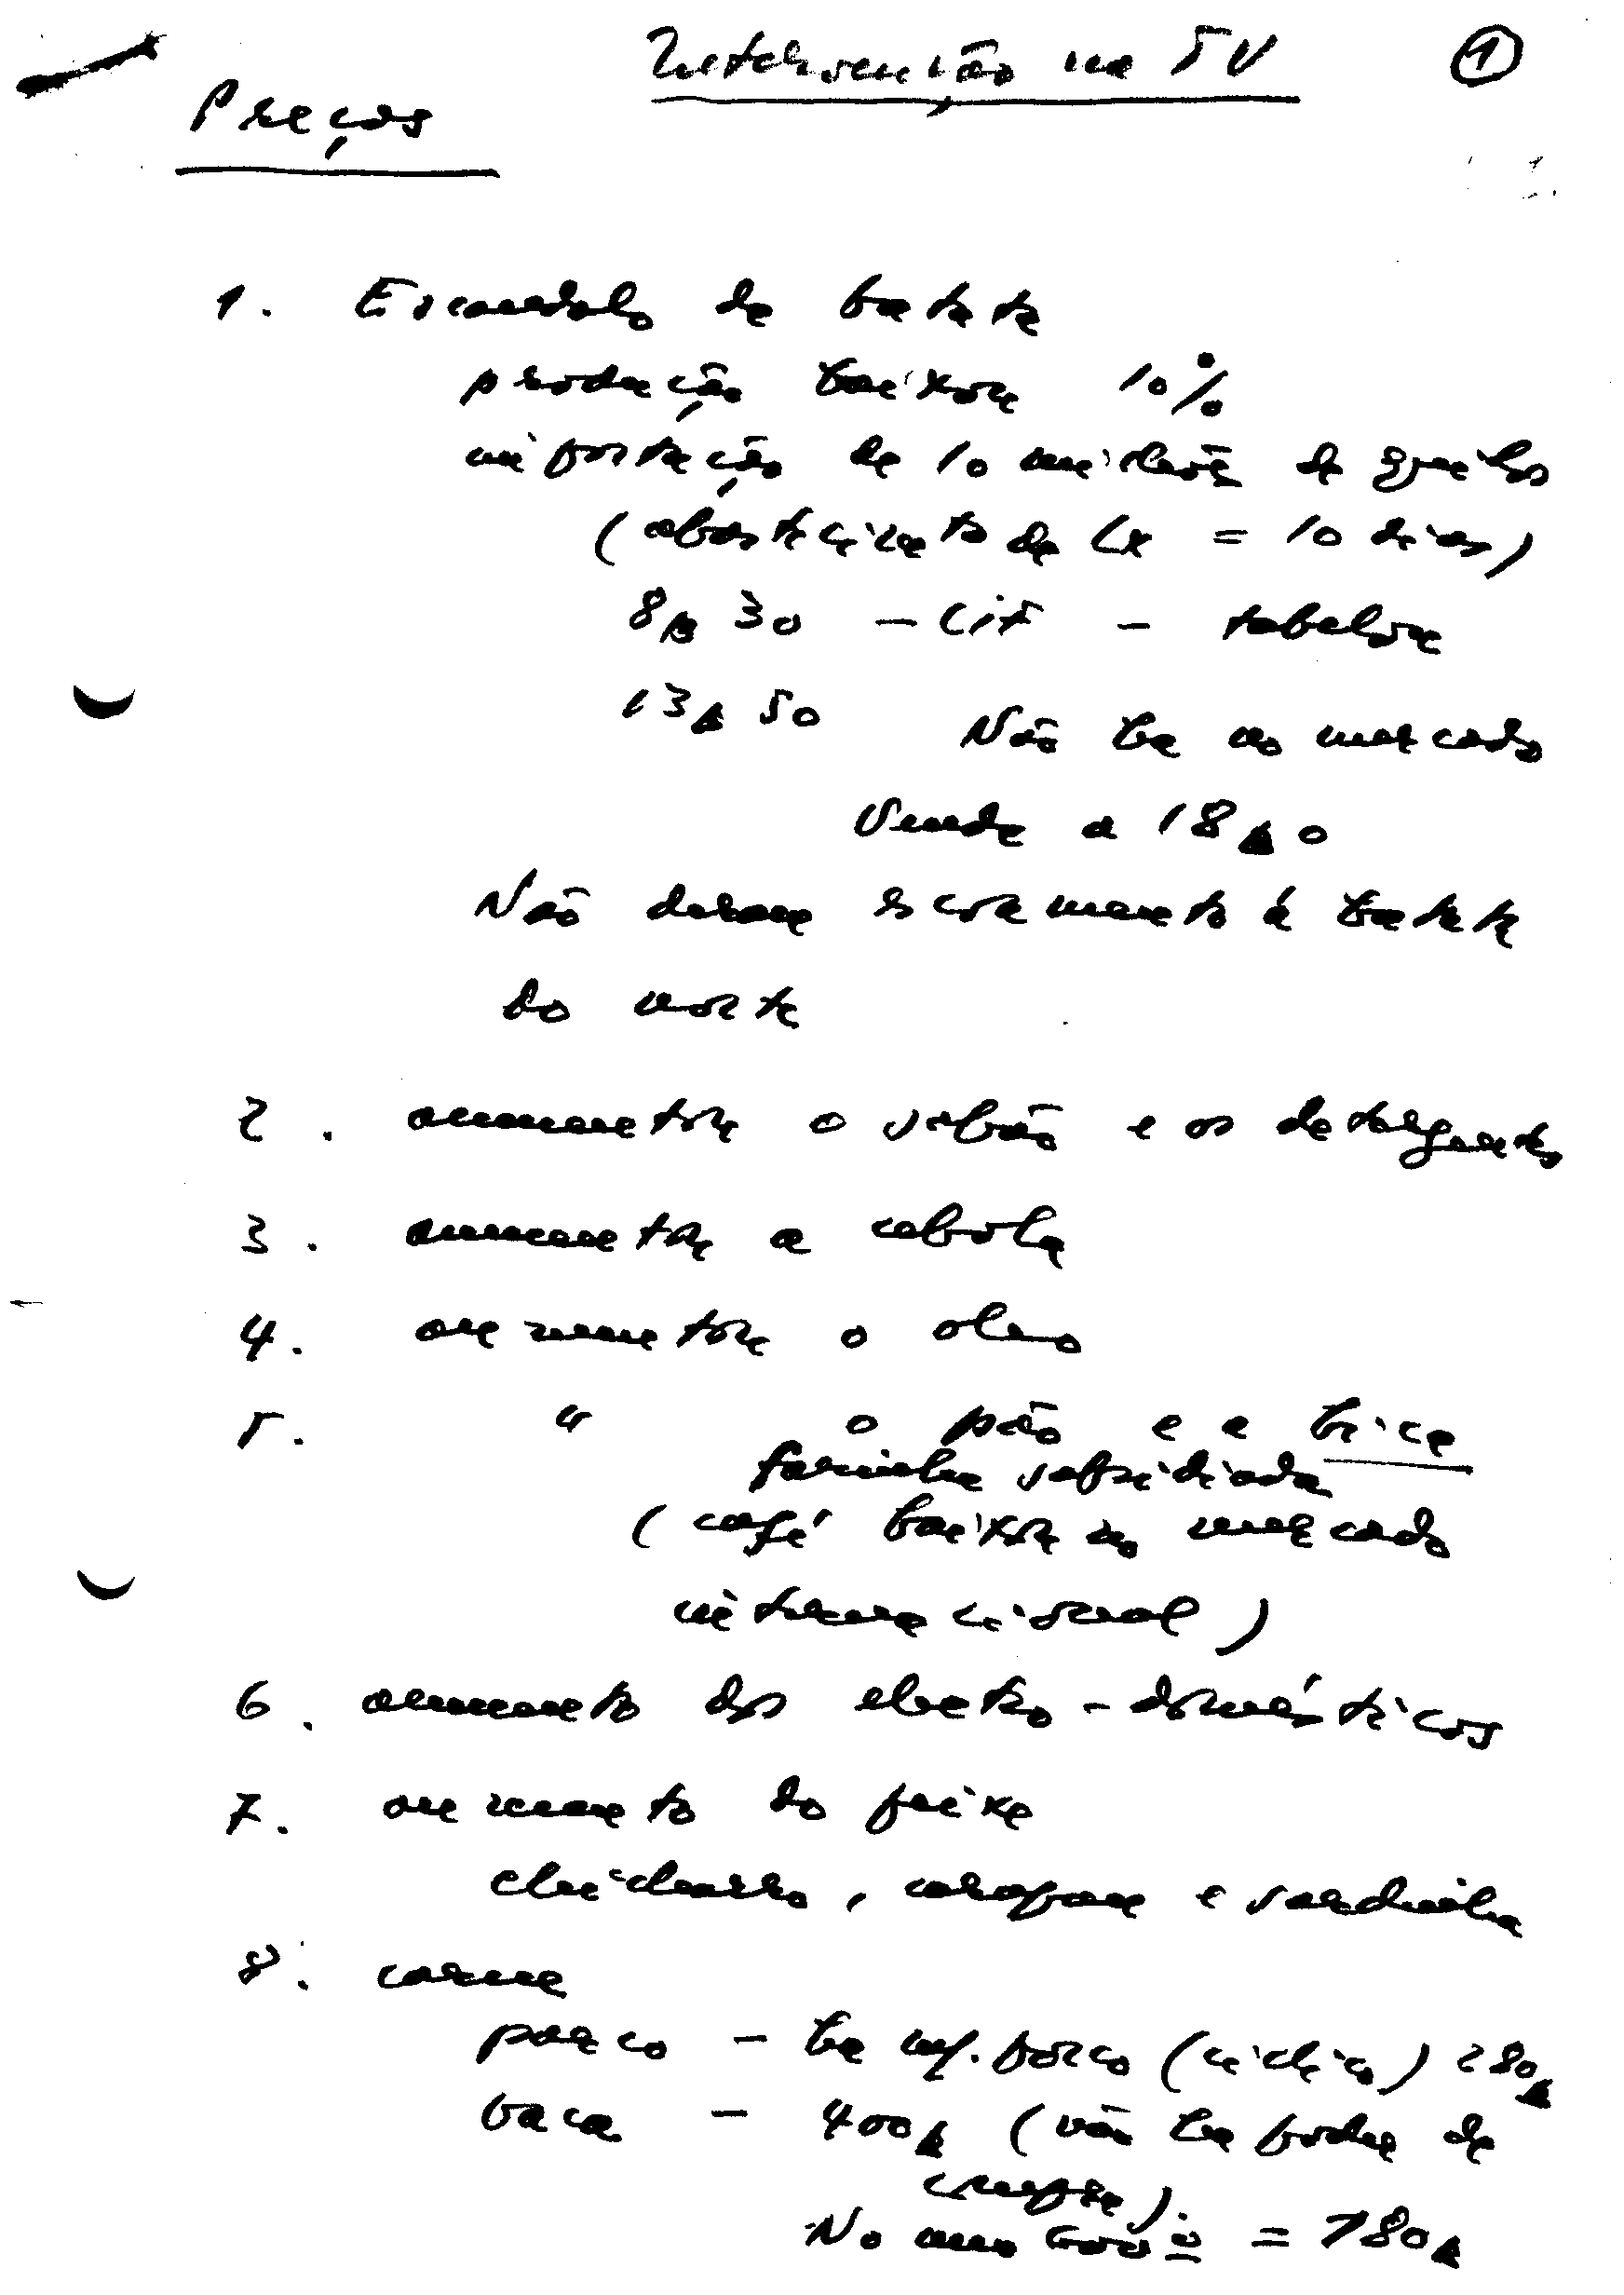 Intervenção na TV ①
Preços
1. Escandalo da batata
produção baixou 10%
importação de 10 milhões de quilos
(abastecimento de Lx = 10 dias)
8$30 - Cif - tabelou
13$50 Não há no mercado
Vende a 18$0
Não deram escoamento à batata
do norte
2. aumentou o sabão e os detergentes
3. aumentou a cebola
4. aumentou o oleo
5. " o pão e a bica
farinha subsidiada
(café baixou no mercado
internacional)
6. aumento dos electro-domésticos
7. aumento do peixe
chicharro, carapau e sardinha
8. carne
porco - há porco (ciclico) 280$
vaca - 400$ (não há poder de
compra).
No = 780$